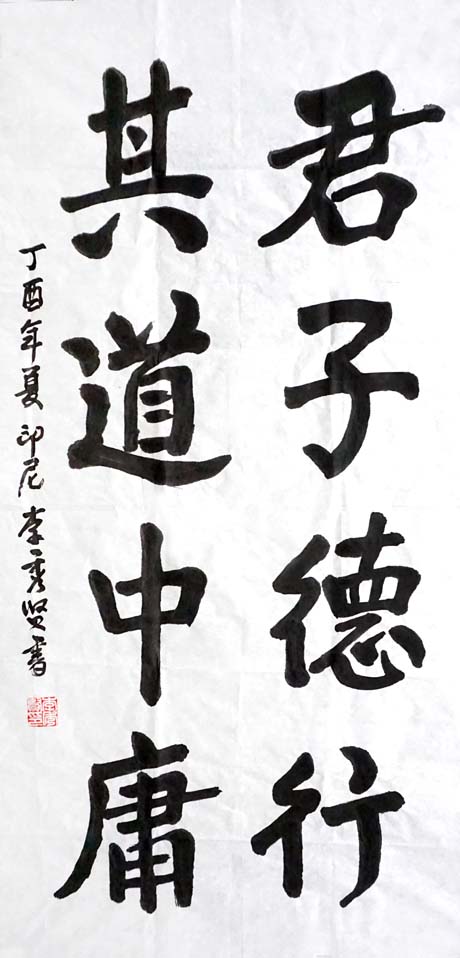 君子德行
其道中庸
丁酉年夏印尼李秀贤书